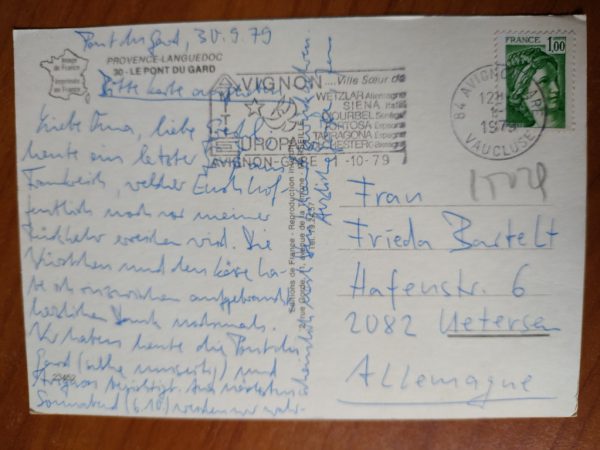 Pont du Gard, 30.9.79
Image de France
Imprimée en France
PROVENCE-LANGUEDOC
30 - LE PONT DU GARD
Bitte Karte aufheben
Liebe Oma, liebe
heute ein letzter aus
Frankreich, welcher Euch hof-
fentlich noch vor meiner
Rückkehr erreichen wird. Die
Würstchen und den Käse ha-
be ich inzwischen aufgebraucht
herzlichen Dank nochmals.
Wir haben heute die Pont du
Gard (siehe umseitig) und
Avignon besichtigt. Am nächsten
Sonnabend (6.10) werden wir wahr-
scheinlich
Editions de France - Reproduction
AVIGNON
....Ville Sœur de
WETZLAR Allemagne
SIENA Italie
DIOURBEL Sénégal
TORTOSA Espagne
TARRAGONA Espagne
COLCHESTER
EUROPA
AVIGNON-GARE 1-10-79
84 AVIGNON GARE
12H
1979
VAUCLUSE
FRANCE
1,00
Frau
Frieda Bartelt
Hafenstr. 6
2082 Uetersen
Allemagne